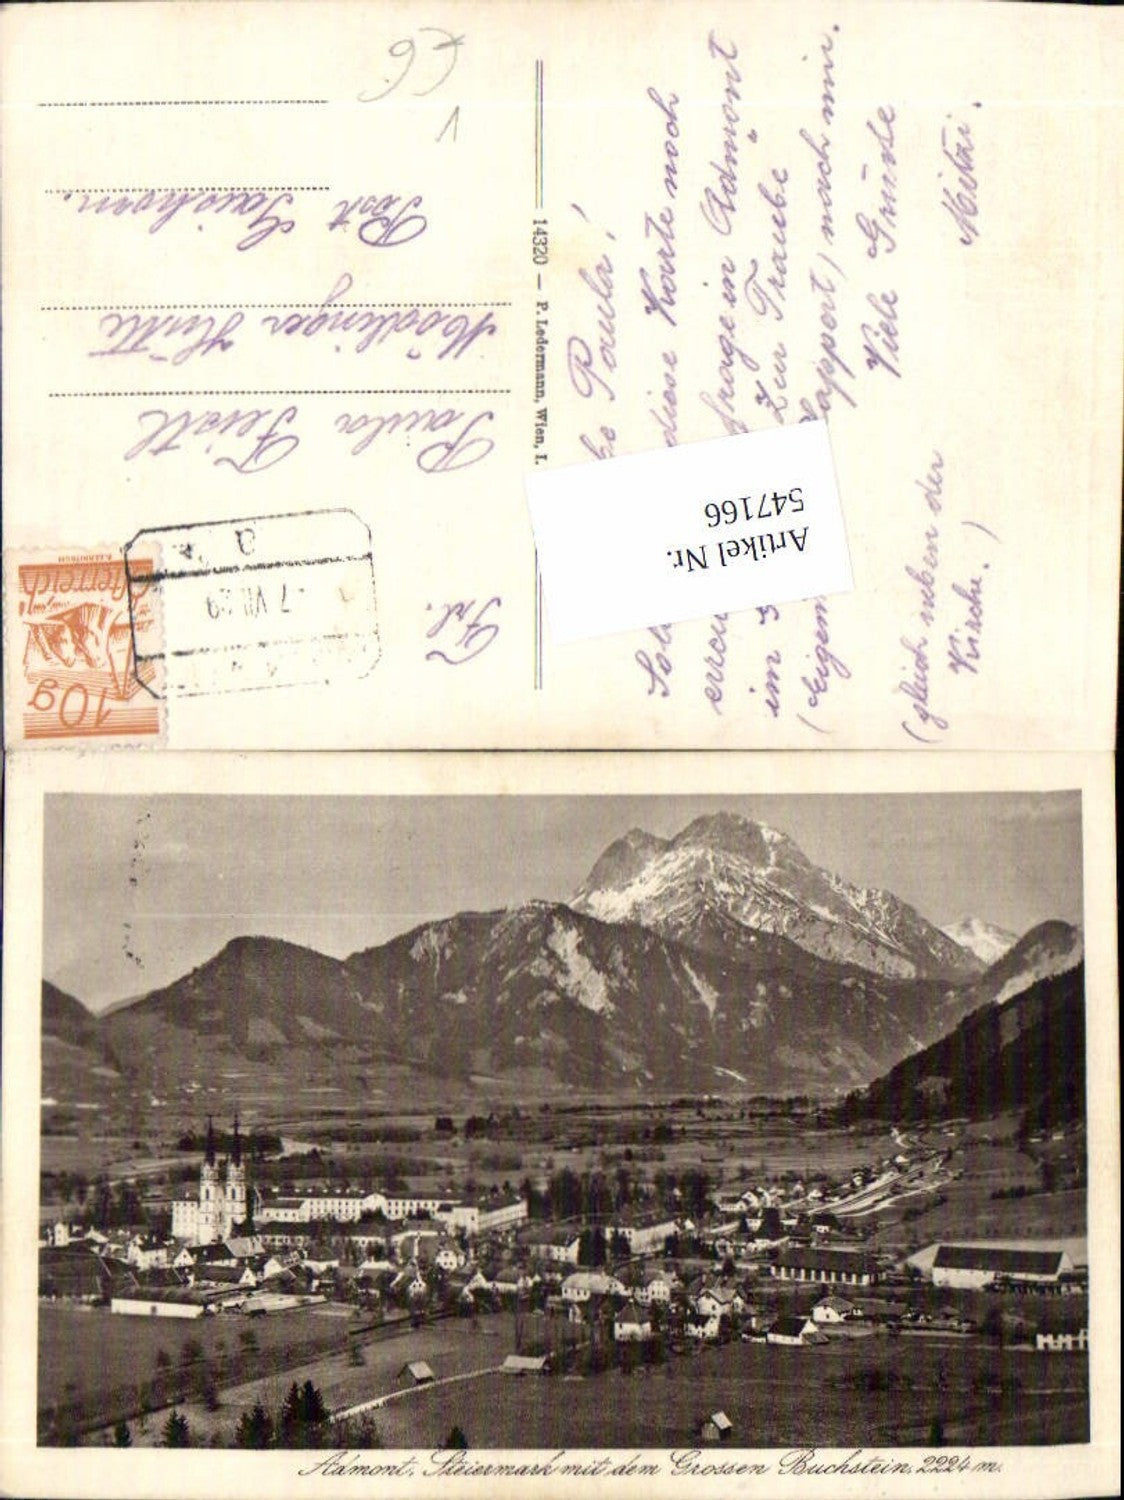 Frl.
Paula Feistl
Mödlinger Hütte
Post Gaishorn.
14320 — P. Ledermann, Wien, I.
Paula!
diese Karte noch
frage in Admont
im Zur Traube
(Eigent appert) nach mir.
Viele Grüsse
Mitzi.
(gleich neben der
Kirche.)
10g
Österreich
7 VII 29
a
1
€6
Artikel Nr.
547166
Admont, Steiermark mit dem Grossen Buchstein, 2224 m.